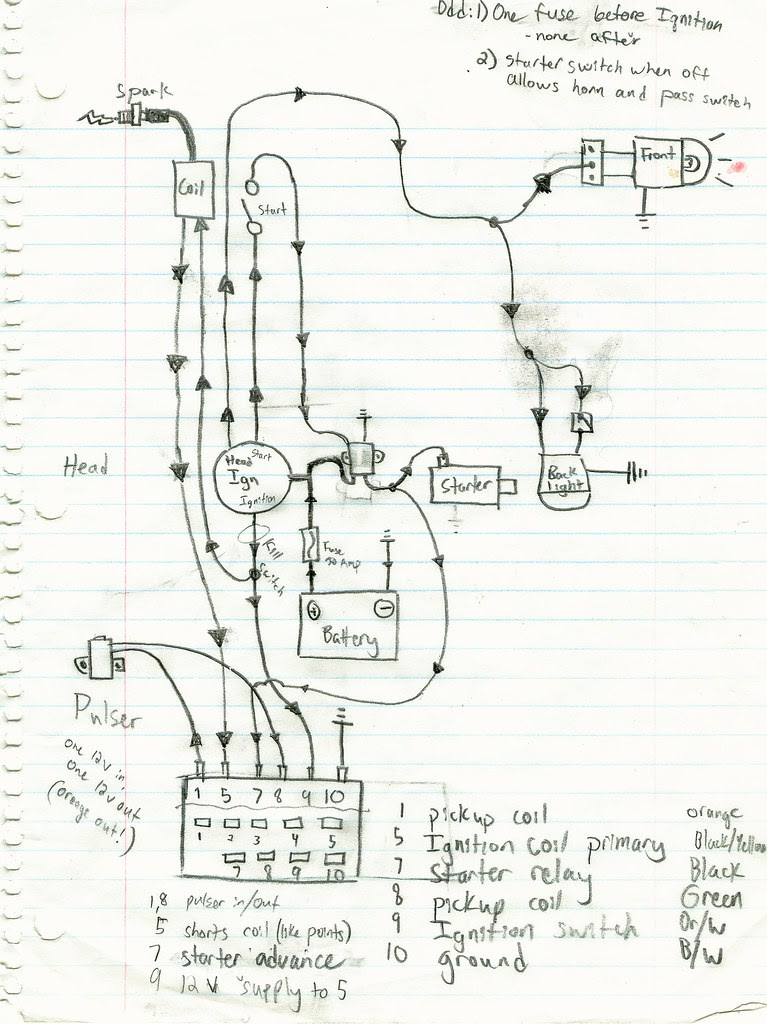 Odd: 1) One fuse before Ignition
- none after
2) starter switch when off
allows horn and pass switch
Spark
Coil
Start
Front
Head
Head Start
Ign
Ignition
Kill
Switch
Fuse
30 Amp
Starter
Back
Light
Battery
Pulser
One 12V in,
One 12V out
(orange out!)
1 5 7 8 9 10
1 2 3 4 5
7 8 9 10
1 pickup coil orange
5 Ignition coil primary Black/Yellow
7 starter relay Black
8 pickup coil Green
9 Ignition switch Or/W
10 ground B/W
1,8 pulser in/out
5 shorts coil (like points)
7 starter advance
9 12V supply to 5